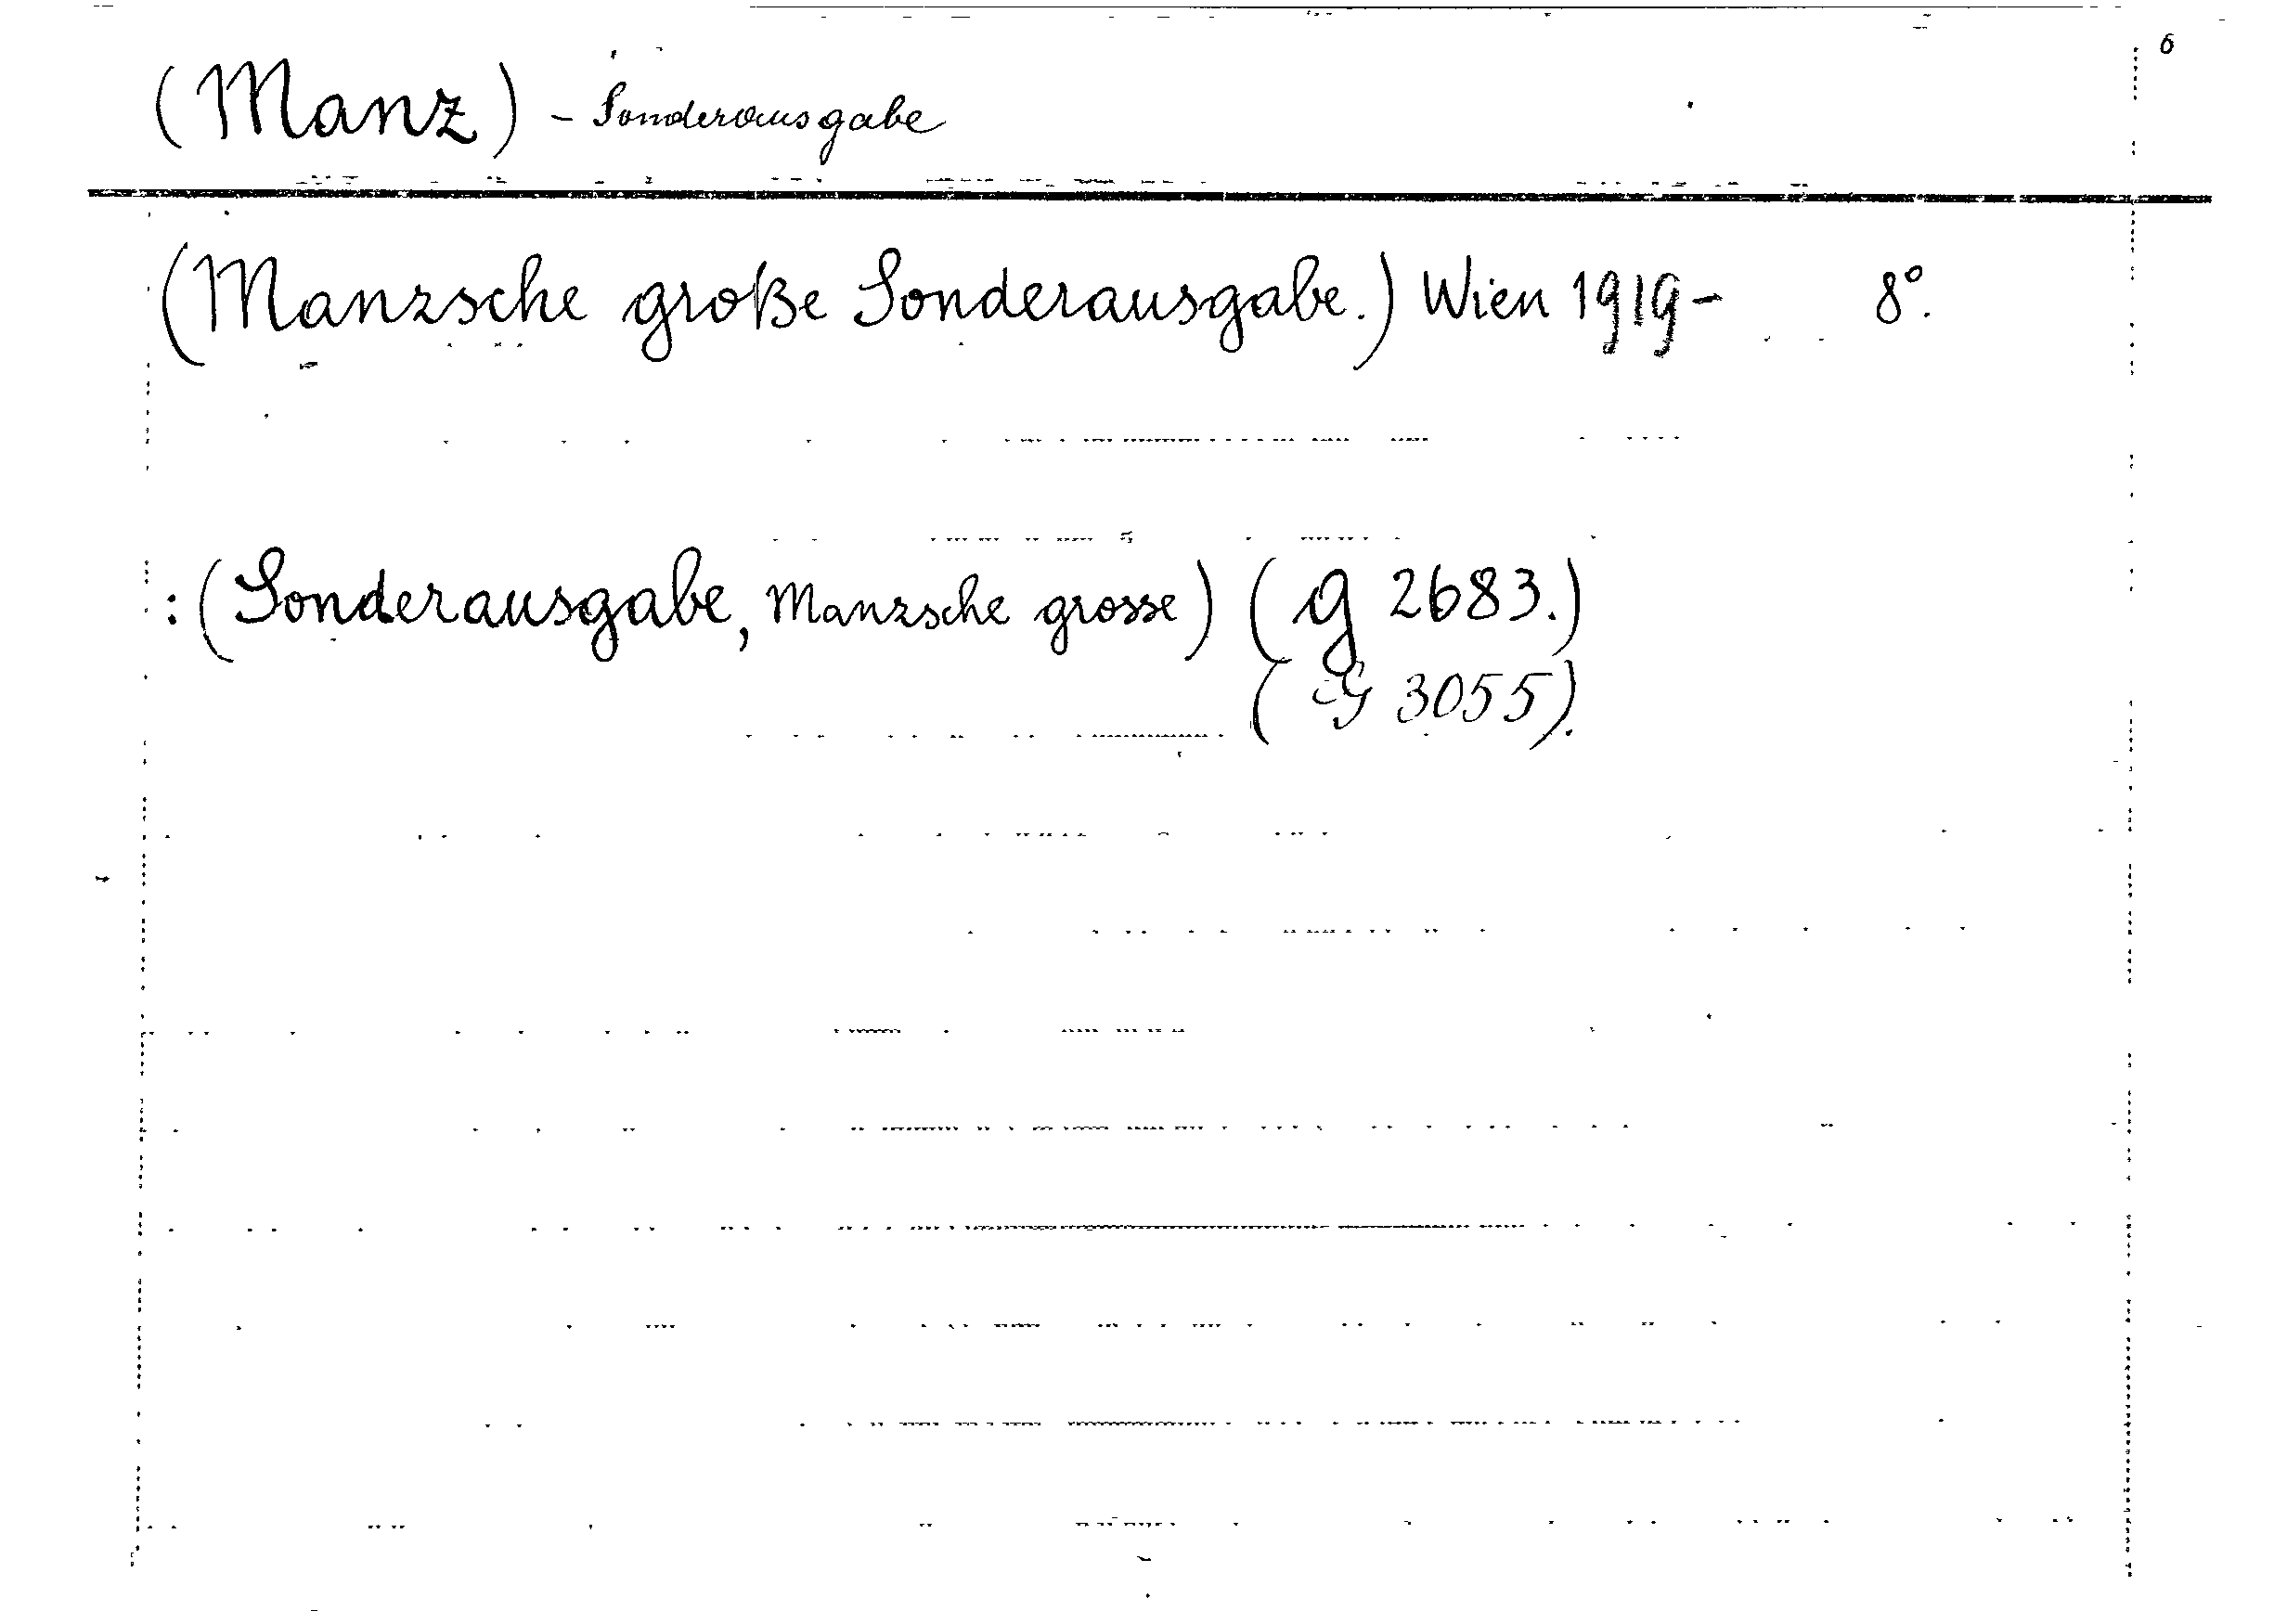 6
(Manz) - Sonderausgabe
(Manzsche große Sonderausgabe.) Wien 1919- 8°.
: (Sonderausgabe, Manzsche grosse) (G 2683.)
(G 3055).